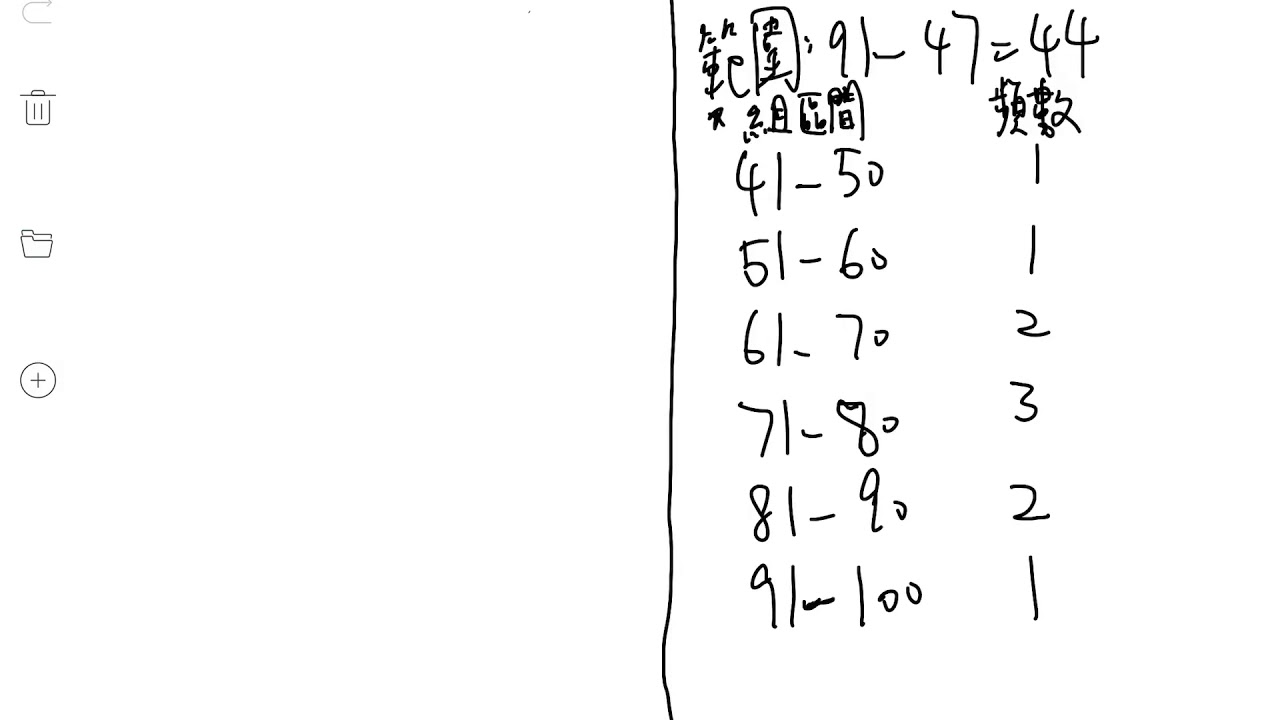 範圍: 91 - 47 = 44
組區間 頻數
41 - 50 1
51 - 60 1
61 - 70 2
71 - 80 3
81 - 90 2
91 - 100 1